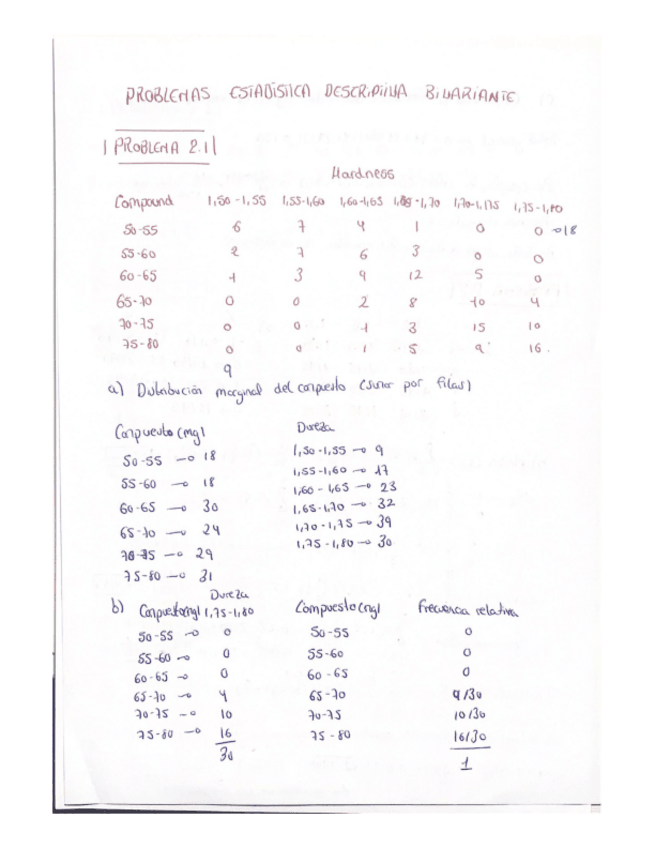 PROBLEMAS ESTADÍSTICA DESCRIPTIVA BIVARIANTE
PROBLEMA 2.1
Hardness
Compound 1,50-1,55 1,55-1,60 1,60-1,65 1,65-1,70 1,70-1,175 1,75-1,80
50-55 6 7 4 1 0 0 →18
55-60 2 7 6 3 0 0
60-65 1 3 9 12 5 0
65-70 0 0 2 8 10 4
70-75 0 0 1 3 15 10
75-80 0 0 1 5 9 16
9
a) Distribución marginal del compuesto (sumar por filas)
Compuesto (mg) Dureza
50-55 → 18 1,50-1,55 → 9
55-60 → 18 1,55-1,60 → 17
60-65 → 30 1,60-1,65 → 23
65-70 → 24 1,65-1,70 → 32
70-75 → 29 1,70-1,75 → 39
75-80 → 31 1,75-1,80 → 30
Dureza
b) Compuesto(mg) 1,75-1,80 Compuesto (mg) Frecuencia relativa
50-55 → 0 50-55 0
55-60 → 0 55-60 0
60-65 → 0 60-65 0
65-70 → 4 65-70 4/30
70-75 → 10 70-75 10/30
75-80 → 16 75-80 16/30
30 1